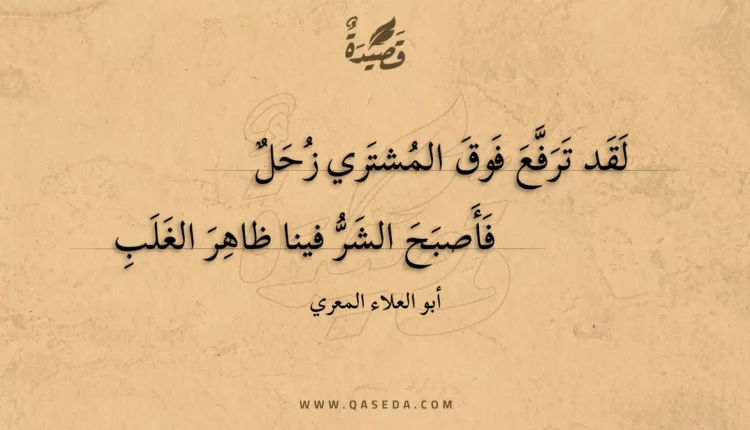 قَصِيْدَةٌ
لَقَد تَرَفَّعَ فَوقَ المُشتَري زُحَلٌ
فَأَصبَحَ الشَرُّ فينا ظاهِرَ الغَلَبِ
أبو العلاء المعري
WWW.QASEDA.COM